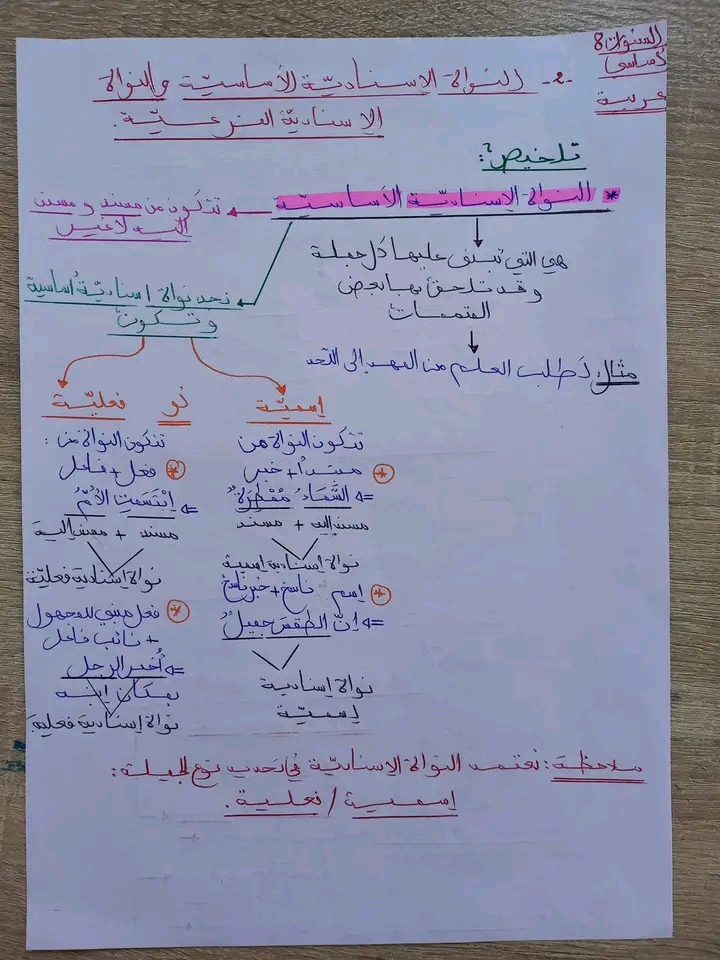 السنوات 8
أساسي
عربية
-2- النواة الإسناديّة الأساسيّة والنواة
الإسنادية الفرعيّة.
تلخيص:
* النواة الإسناديّة الأساسيّة
تتكون من مسند و مسند
إليه لا غير
هي التي تبنى عليها كل جملة
و قد تلحق بها بعض
المتممات
مثال: أطلب العلم من المهد إلى اللحد
نجد نواة إسناديّة أساسية
وتكون
إسميّة
أو
فعليّة
تتكون النواة من
مبتدأ + خبر
<= السَّمَاءُ مُمْطِرَةٌ
مسند إليه + مسند
نواة إسنادية إسمية
إسم ناسخ + خبر ناسخ
<= إنّ الطقسَ جميلٌ
نواة إسنادية
إسميّة
تتكون النواة من:
فعل + فاعل
<= ابْتَسَمَتِ الأُمُّ
مسند + مسند إليه
نواة إسنادية فعليّة
فعل مبني للمجهول
+ نائب فاعل
<= أُخبر الرجل
بمكان ابنه
نواة إسنادية فعلية.
ملاحظة: نعتمد النواة الإسناديّة في تحديد نوع الجملة:
إسمية / فعلية.